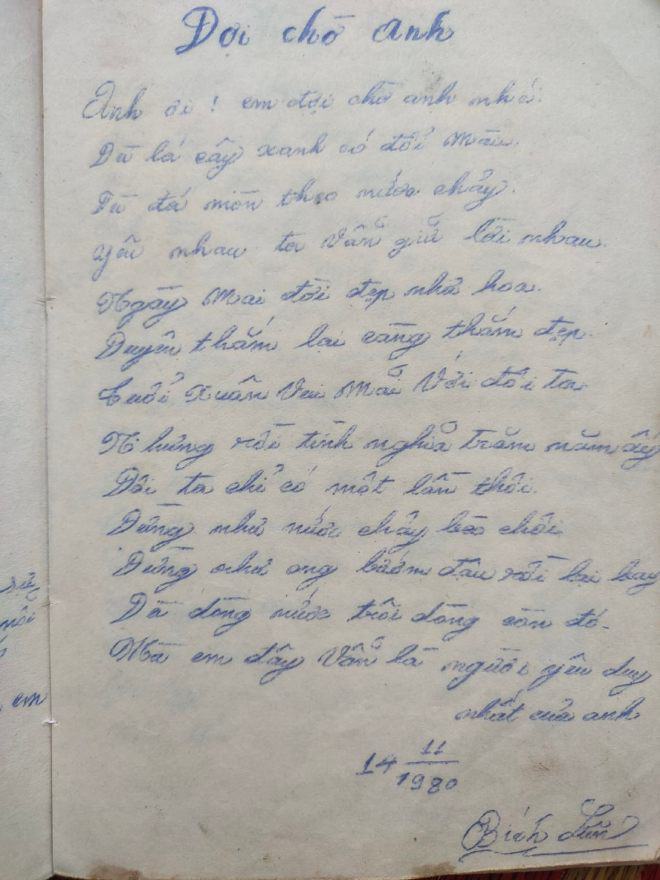 Đợi chờ anh
Anh ơi ! em đợi chờ anh nhé.
Dù lá cây xanh có đổi màu.
Dù đá mòn theo nước chảy.
Yêu nhau ta vẫn giữ lời nhau.
Ngày mai đời đẹp như hoa.
Duyên thắm lại càng thắm đẹp.
Tuổi xuân vui mãi với đôi ta
Nhưng rồi tình nghĩa trăm năm ấy
Đôi ta chỉ có một lần thôi.
Đừng như nước chảy bèo trôi
Đừng như ong bướm đậu rồi lại bay
Dù dòng nước trôi dòng còn đó.
Mà em đây vẫn là người yêu duy
nhất của anh
14 11/1980
Bích
em